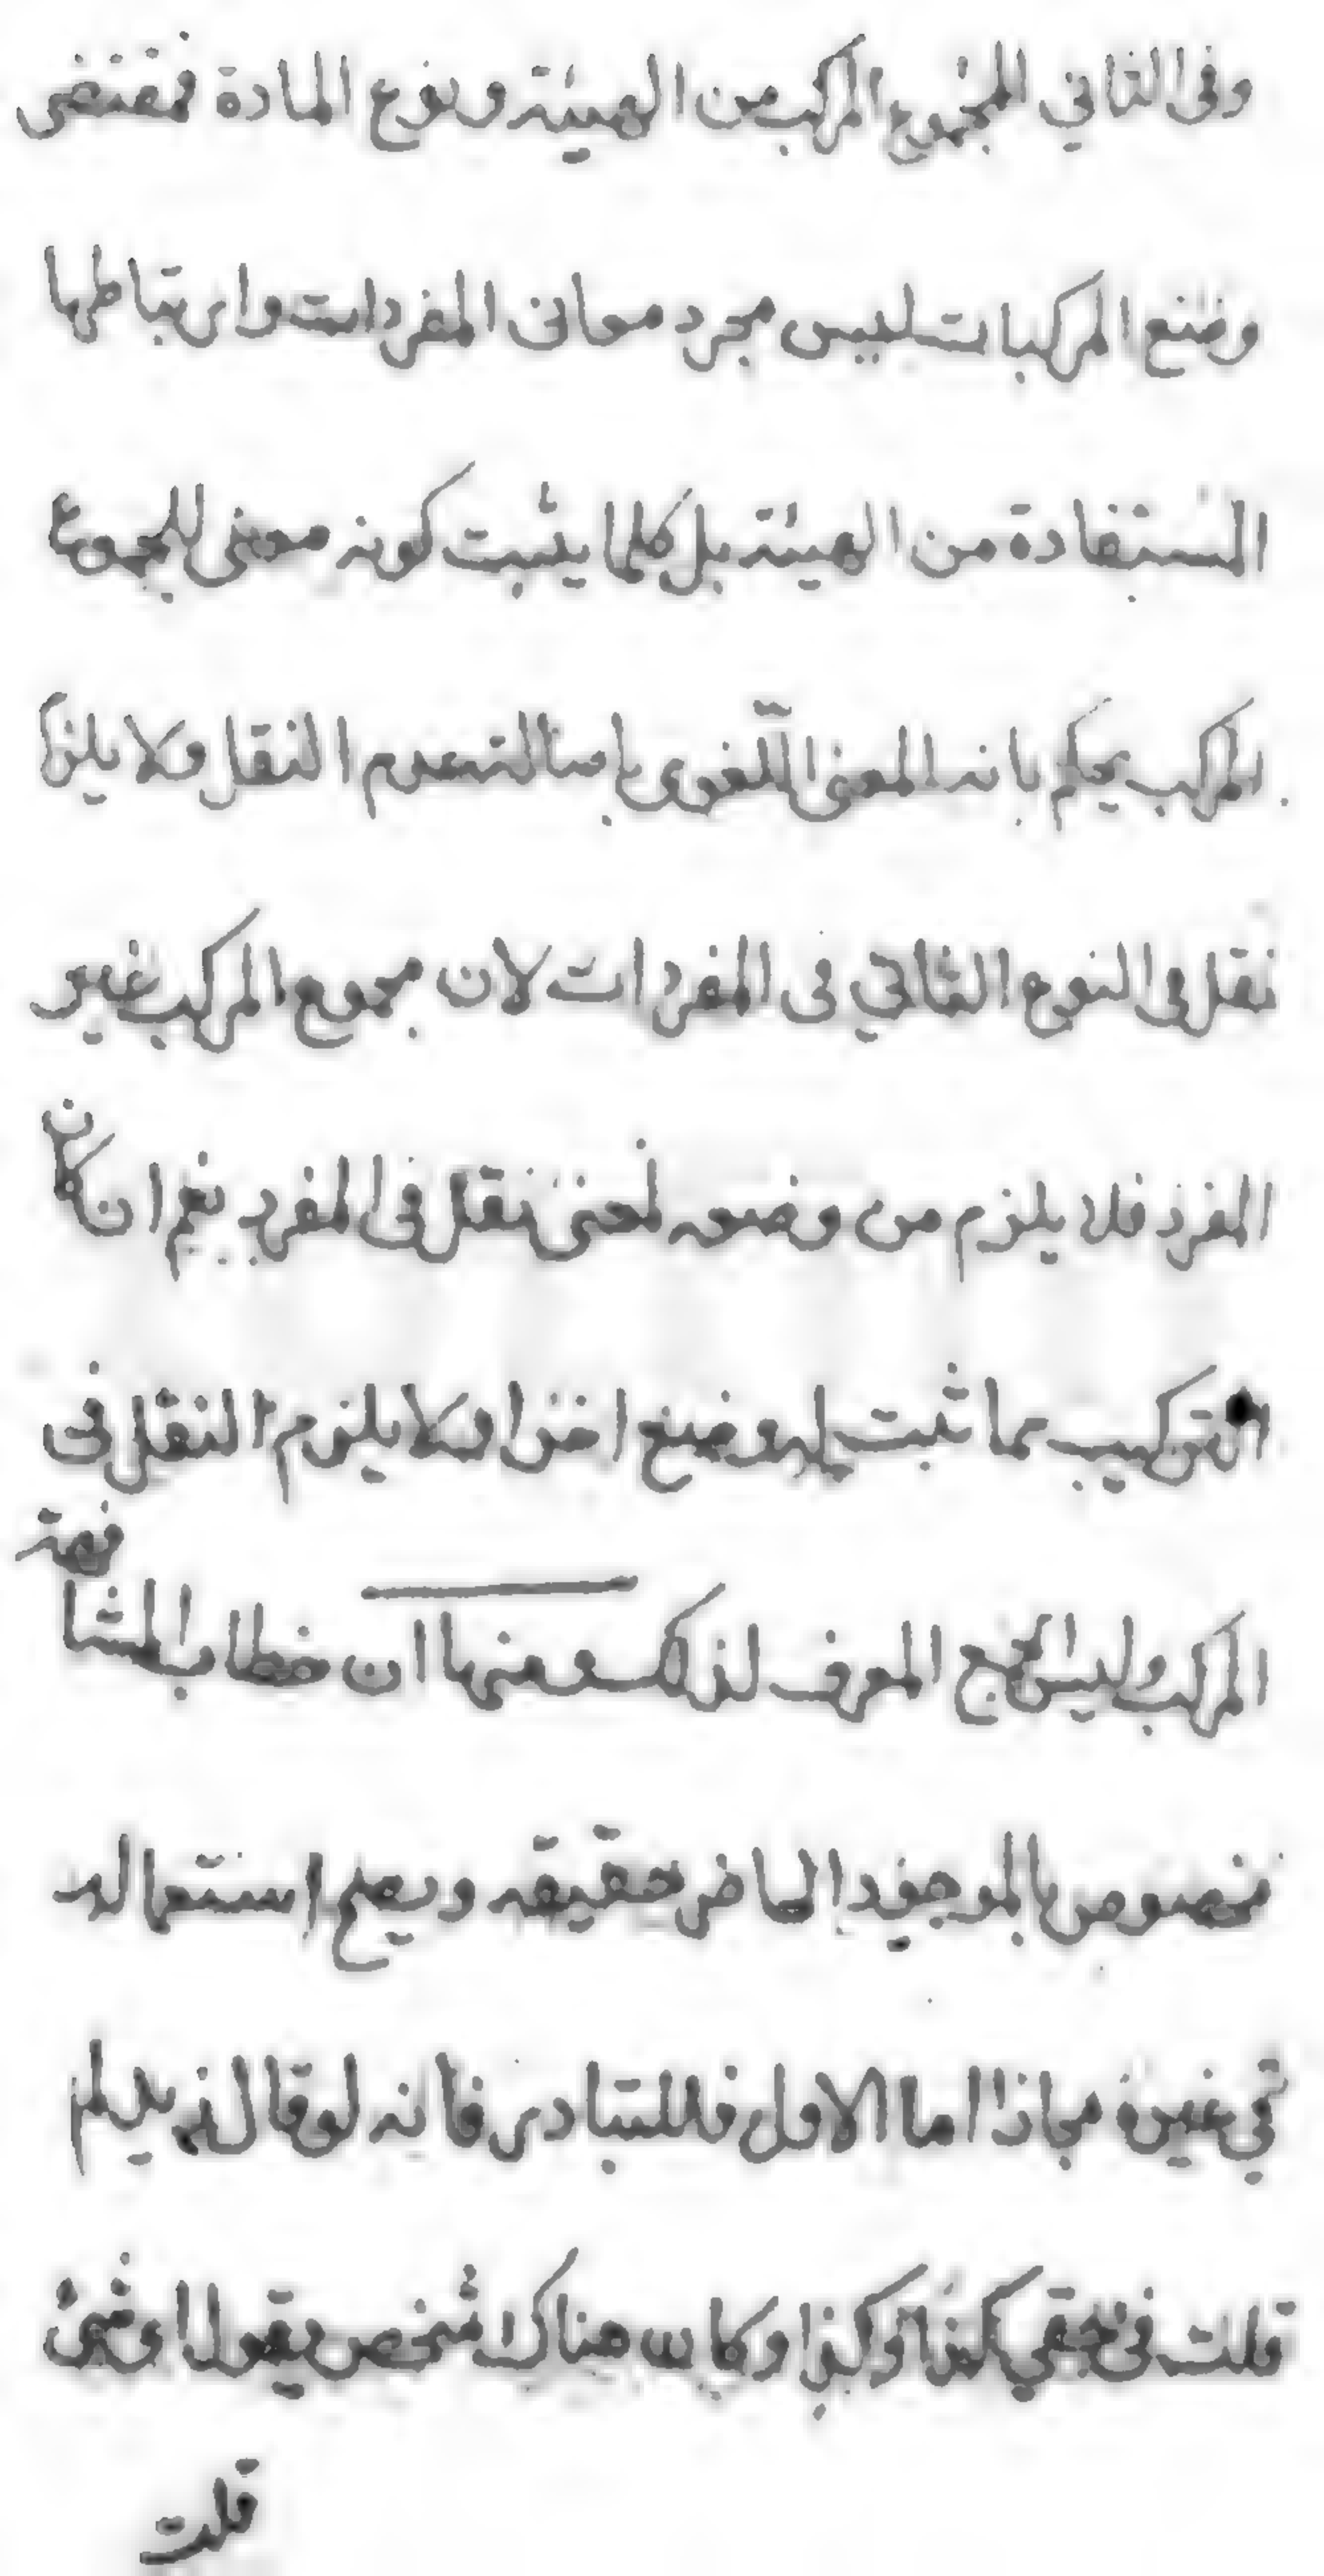 وفى الثاني المجموع المركب من الهيئة ونوع المادة فمقتضى
وضع المركبات ليس مجرد معانى المفردات وارتباطها
المستفادة من الهيئة بل كلما يثبت كونه معنى للمجموع
المركب يحكم بانه المعنى اللغوى باصالة عدم النقل ولا يلزم
نقل فى النوع الثاني فى المفردات لان مجموع المركب غير
المفرد فلا يلزم من وضعه لمعنى نقل فى المفرد نعم ان كان
التركيب مما ثبت له وضع اخر اولا يلزم النقل فى
المركب وليس الجمع المعرف لذلك ومنها ان خطاب المشافهة
مخصوص بالموجود الحاضر حقيقه ويصح استعماله
في غيره مجازا اما الاول فللتبادر فانه لو قال زيد لم
قلت فى حقي كذا وكذا وكان هناك شخص يقول اى شئ
قلت